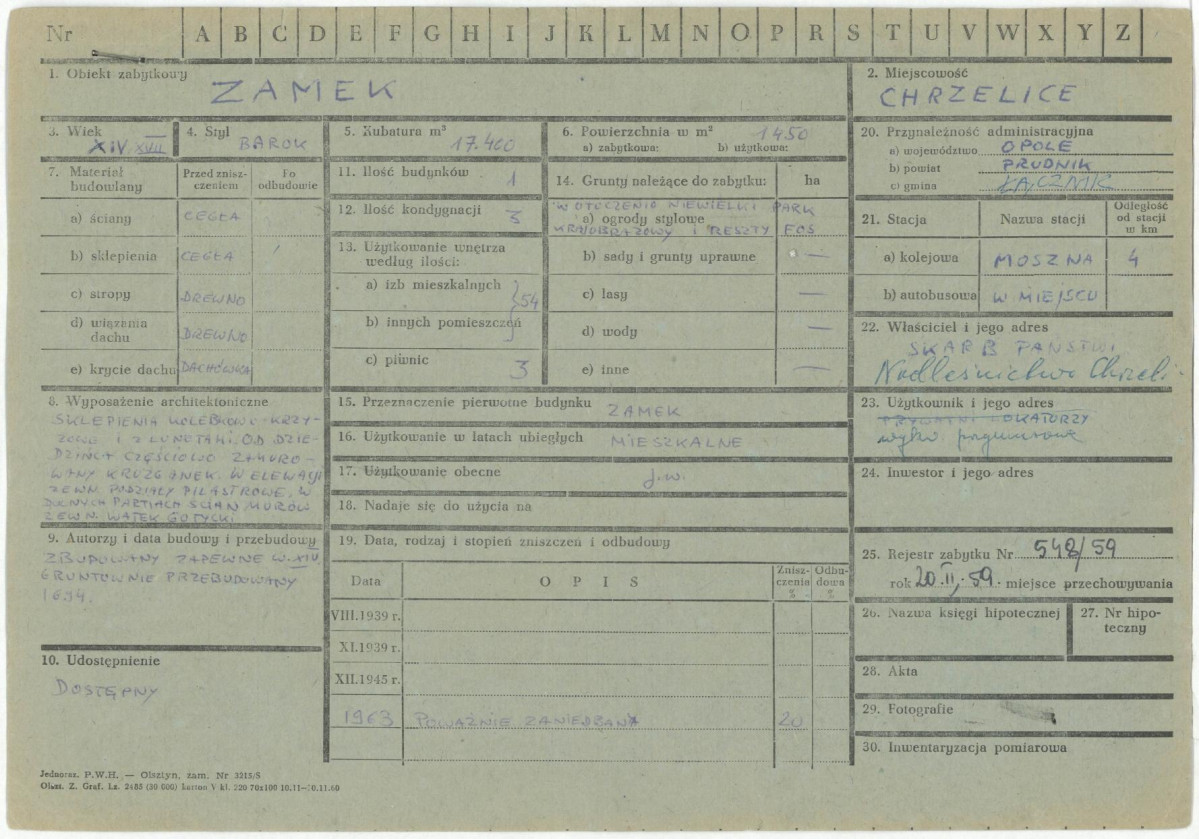 Nr A B C D E F G H I J K L M N O P R S T U V W X Y Z
1. Obiekt zabytkowy
ZAMEK
2. Miejscowość
CHRZELICE
3. Wiek
XIV, XVII
4. Styl
BAROK
5. Kubatura m³
17.400
6. Powierzchnia w m² 1450
a) zabytkowa: b) użytkowa:
7. Materiał budowlany
Przed zniszczeniem
Po odbudowie
a) ściany CEGŁA
b) sklepienia CEGŁA
c) stropy DREWNO
d) wiązania dachu DREWNO
e) krycie dachu DACHÓWKA
8. Wyposażenie architektoniczne
SKLEPIENIA KOLEBKOWO-KRZY-
ŻOWE I Z LUNETAMI. OD DZIE-
DZIŃCA CZĘŚCIOWO ZAMURO-
WANY KRUŻGANEK. W ELEWACJI
ZEWN. PODZIAŁY PILASTROWE. W
DOLNYCH PARTIACH ŚCIAN MURÓW
ZEWN. WĄTEK GOTYCKI
9. Autorzy i data budowy i przebudowy
ZBUDOWANY ZAPEWNE W XIV,
GRUNTOWNIE PRZEBUDOWANY
1694.
10. Udostępnienie
DOSTĘPNY
11. Ilość budynków 1
12. Ilość kondygnacji 3
13. Użytkowanie wnętrza
według ilości:
a) izb mieszkalnych
54
b) innych pomieszczeń
c) piwnic 3
14. Grunty należące do zabytku: ha
W OTOCZENIU NIEWIELKI PARK
a) ogrody stylowe
KRAJOBRAZOWY I RESZTY FOS
b) sady i grunty uprawne —
c) lasy —
d) wody —
e) inne —
15. Przeznaczenie pierwotne budynku ZAMEK
16. Użytkowanie w latach ubiegłych MIESZKALNE
17. Użytkowanie obecne j.w.
18. Nadaje się do użycia na
19. Data, rodzaj i stopień zniszczeń i odbudowy
Data OPIS Zniszczenia % Odbudowa %
VIII.1939 r.
XI.1939 r.
XII.1945 r.
1963 POWAŻNIE ZANIEDBANY 20
20. Przynależność administracyjna
a) województwo OPOLE
b) powiat PRUDNIK
c) gmina ŁĄCZNIK
21. Stacja Nazwa stacji Odległość od stacji w km
a) kolejowa MOSZNA 4
b) autobusowa W MIEJSCU
22. Właściciel i jego adres
SKARB PAŃSTWA
Nadleśnictwo Chrzeli-
23. Użytkownik i jego adres
PRYWATNI LOKATORZY
24. Inwestor i jego adres
25. Rejestr zabytku Nr 548/59
rok 20.II.59. miejsce przechowywania
26. Nazwa księgi hipotecznej
27. Nr hipoteczny
28. Akta
29. Fotografie
30. Inwentaryzacja pomiarowa
Jednoraz. P.W.H. — Olsztyn, zam. Nr 3215/S
Olszt. Z. Graf. Lz. 2485 (30 000) karton V kl. 220 70x100 10.11—10.11.60